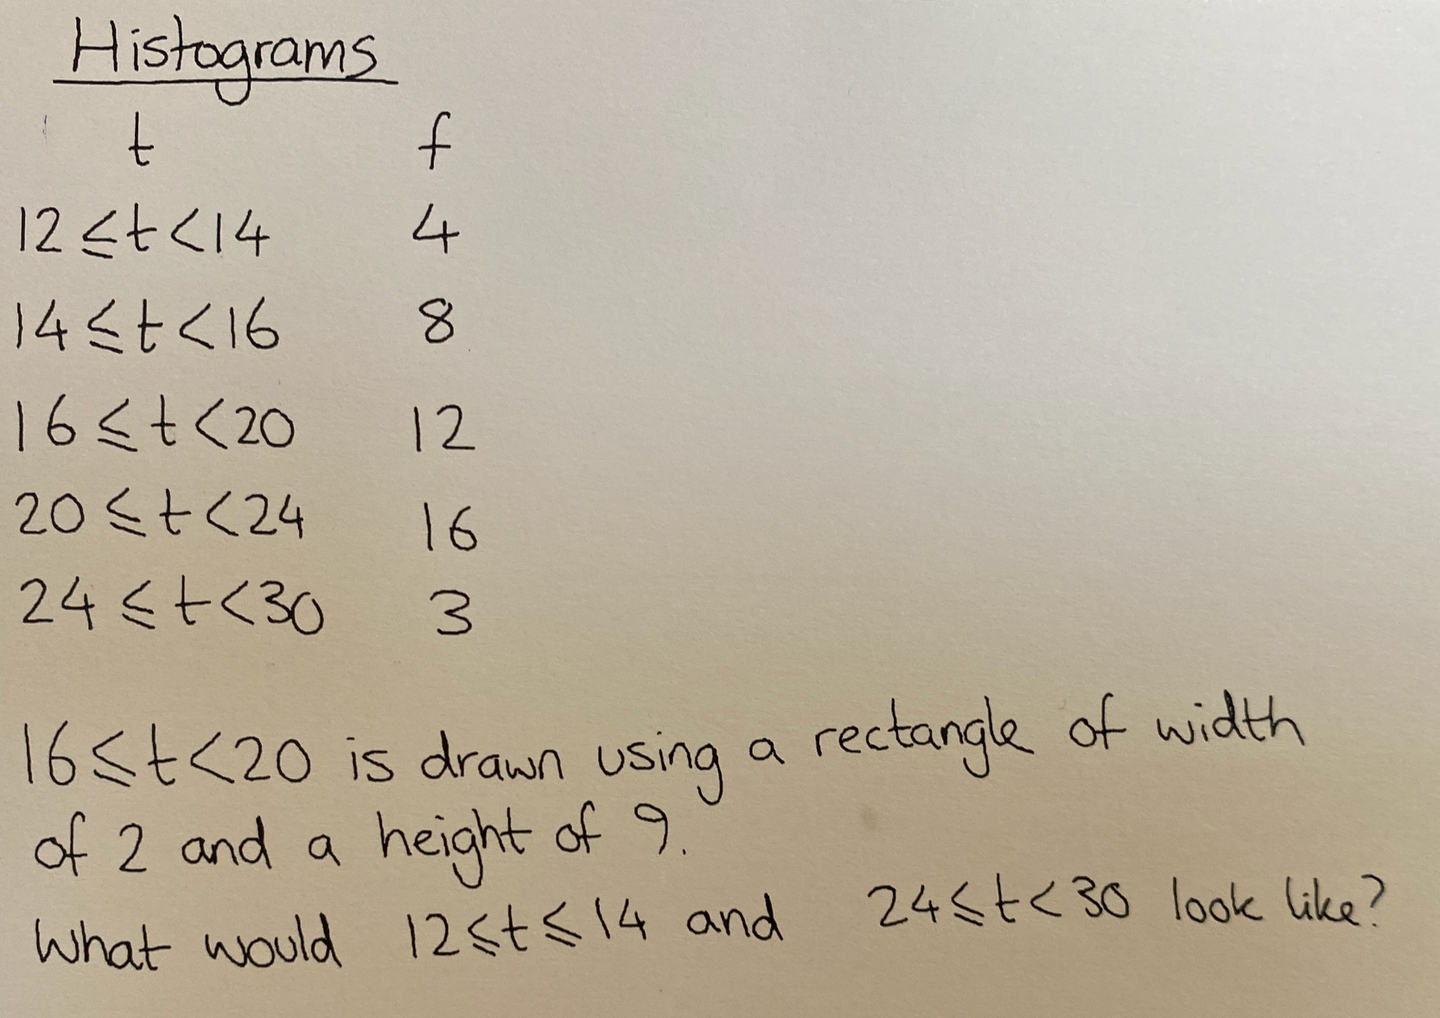 Histograms
t f
12 ≤ t < 14 4
14 ≤ t < 16 8
16 ≤ t < 20 12
20 ≤ t < 24 16
24 ≤ t < 30 3
16 ≤ t < 20 is drawn using a rectangle of width
of 2 and a height of 9.
What would 12 ≤ t ≤ 14 and 24 ≤ t < 30 look like?